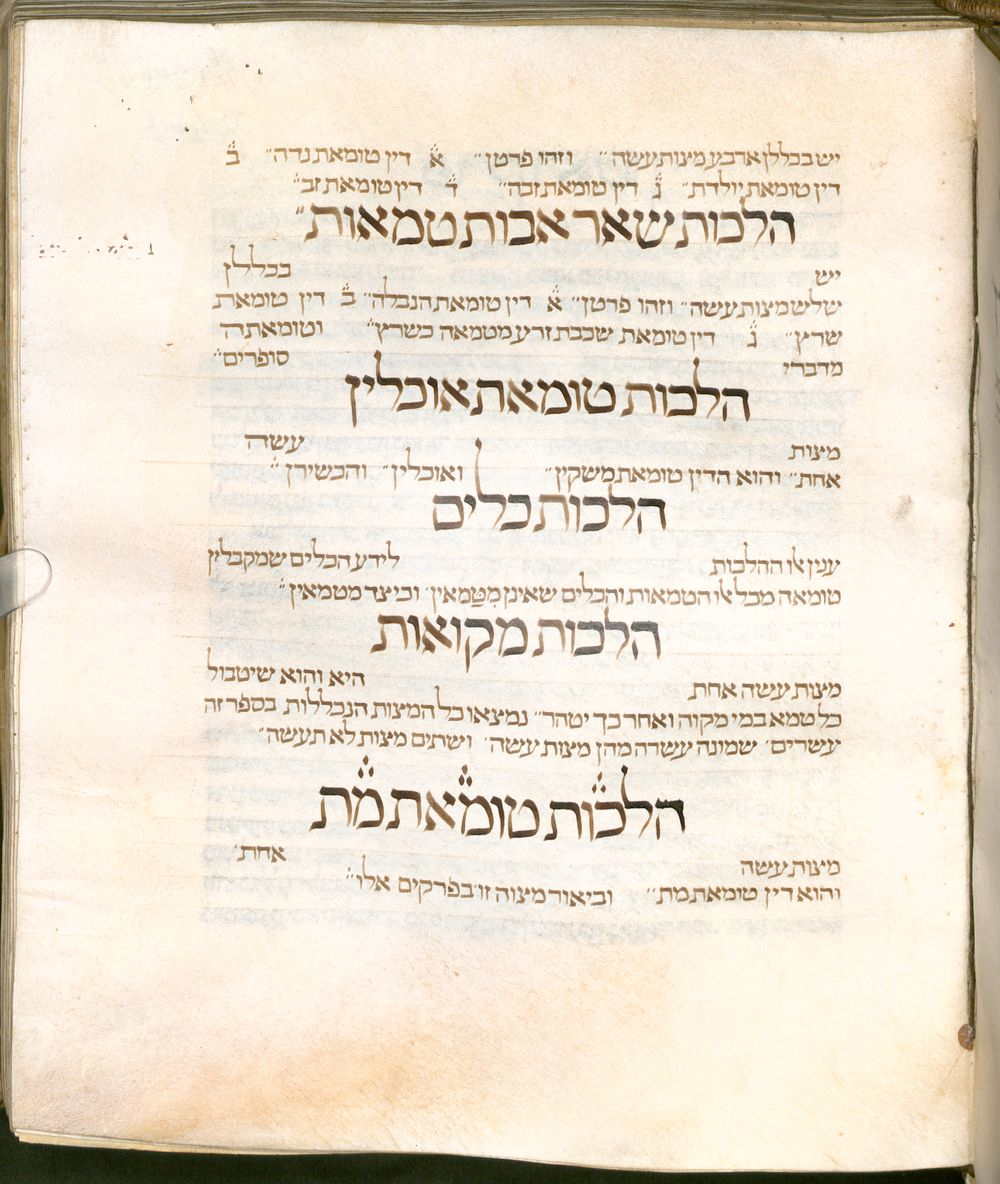 יש בכללן ארבע מצות עשה״ וזהו פרטן״ א̈ דין טומאת נדה״ ב̈
דין טומאת יולדת״ ג̈ דין טומאת זבה״ ד̈ דין טומאת זב״
הלכות שאר אבות טמאות״
יש בכללן
שלש מצות עשה״ וזהו פרטן״ א̈ דין טומאת הנבלה״ ב̈ דין טומאת
שרץ״ ג̈ דין טומאת שכבת זרע מטמאה כשרץ״ וטומאתה
מדברי סופרים״
הלכות טומאת אוכלין
מצות עשה
אחת״ והוא הדין טומאת משקין״ ואוכלין״ והכשירן״
הלכות כלים
ענין אלו ההלכות לידע הכלים שמקבלין
טומאה מכל אלו הטמאות והכלים שאינן מִטַּמאין׳ וכיצד מטמאין״
הלכות מקואות
מצות עשה אחת היא והוא שיטבול
כל טמא במי מקוה ואחר כך יטהר״ נמצאו כל המצות הנכללות בספר זה
עשרים׳ שמונה עשרה מהן מצות עשה׳ ושתים מצות לא תעשה״
הלכות טומאת מת
מצות עשה אחת׳
והוא דין טומאת מת״ וביאור מצוה זו בפרקים אלו״